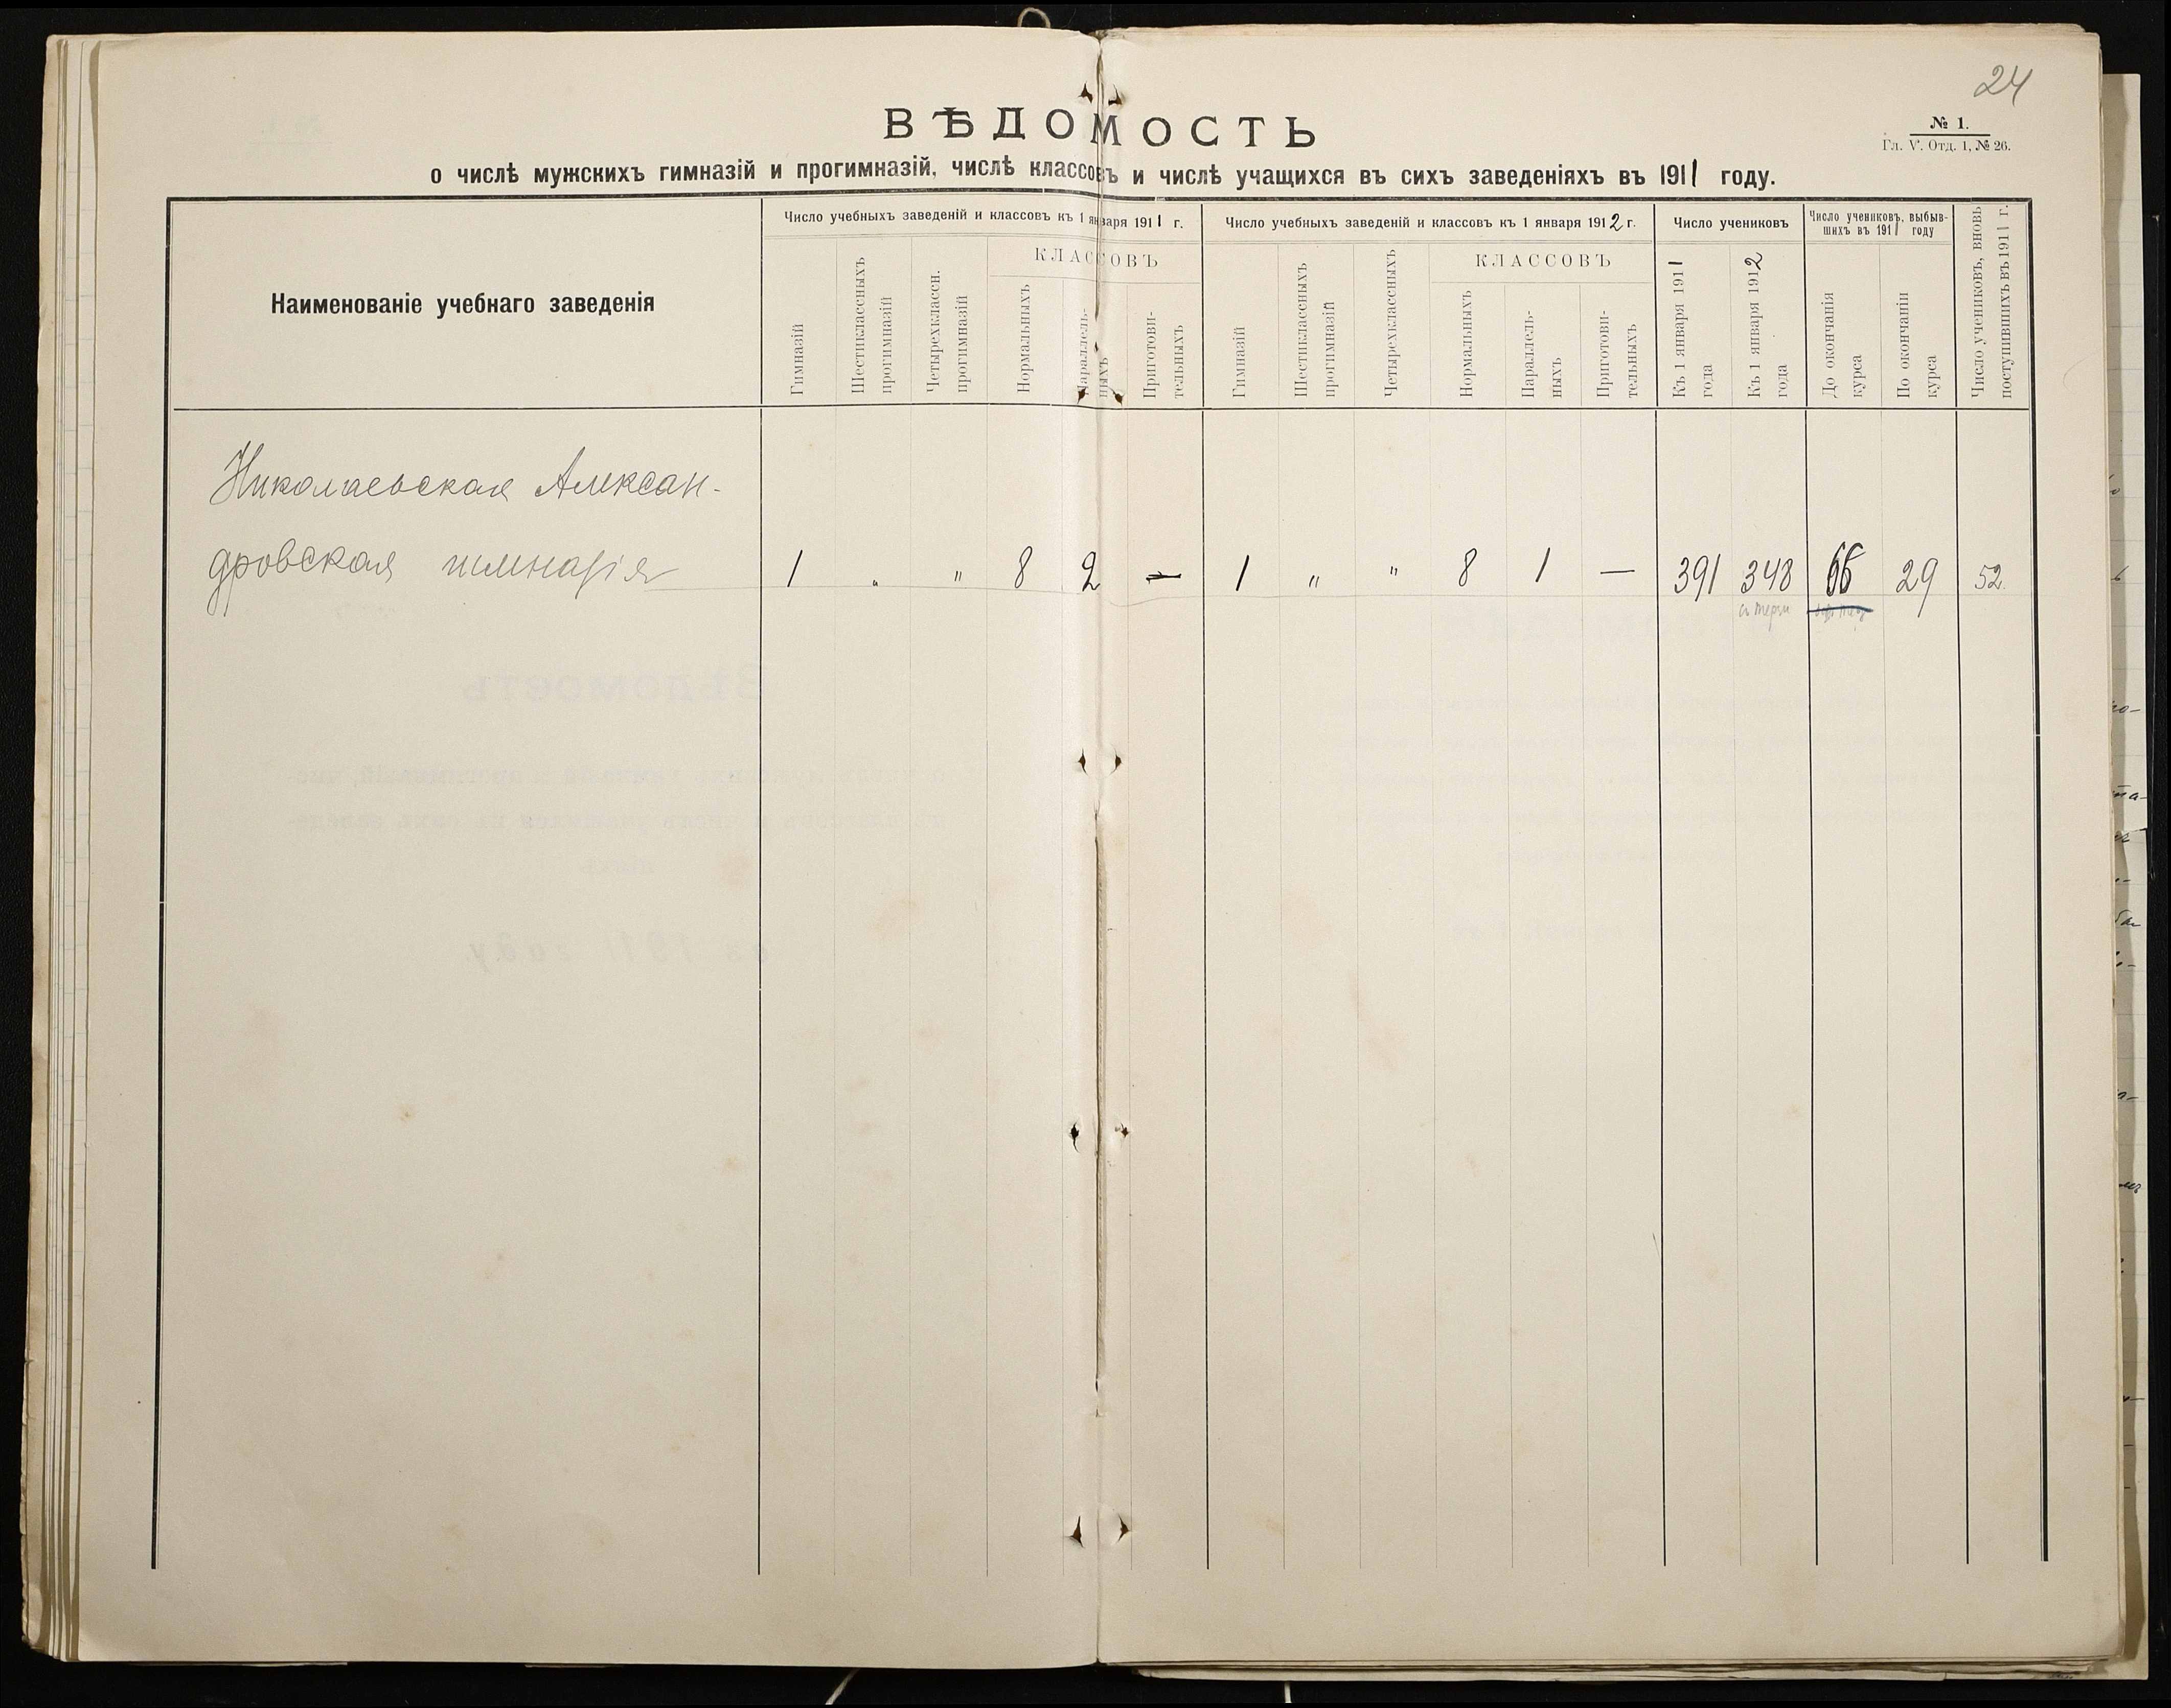 24
ВѢДОМОСТЬ
№ 1.
Гл. V. Отд. 1, № 26.
о числѣ мужскихъ гимназій и прогимназій, числѣ классовъ и числѣ учащихся въ сихъ заведеніяхъ въ 1911 году.
Наименованіе учебнаго заведенія
Число учебныхъ заведеній и классовъ къ 1 января 1911 г.
Гимназій
Шестиклассныхъ
прогимназій
Четырехклассн.
прогимназій
КЛАССОВЪ
Нормальныхъ
Параллель-
ныхъ
Приготови-
тельныхъ
Число учебныхъ заведеній и классовъ къ 1 января 1912 г.
Гимназій
Шестиклассныхъ
прогимназій
Четырехклассныхъ
КЛАССОВЪ
Нормальныхъ
Параллель-
ныхъ
Приготови-
тельныхъ
Число учениковъ
Къ 1 января 1911
года
Къ 1 января 1912
года
Число учениковъ, выбыв-
шихъ въ 1911 году
До окончанія
курса
По окончаніи
курса
Число учениковъ, вновь
поступившихъ въ 1911 г.
Николаевская Алексан-
дровская гимназія 1 " " 8 2 — 1 " " 8 1 — 391 348 66 29 52.